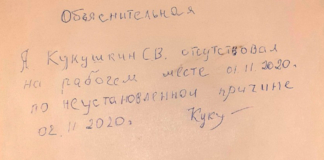 Объяснительная
Я Кукушкин СВ. отсутствовал
на рабочем месте 01.11.2020.
по неустановленной причине
02.11 2020г. Куку